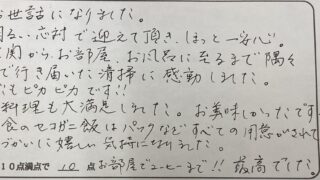 お世話になりました。
明るい応対で迎えて頂き、ほっと一安心。
玄関からお部屋、お風呂に至るまで隅々
まで行き届いた清掃に感動しました。
ピカピカです!!
料理も大満足しました。お美味しかったです
食のセコガニ飯はパックなどすべての用意がされて
嬉しい気持になりました。
10点満点で 10 点 お部屋でコーヒーまで!! 最高でした。